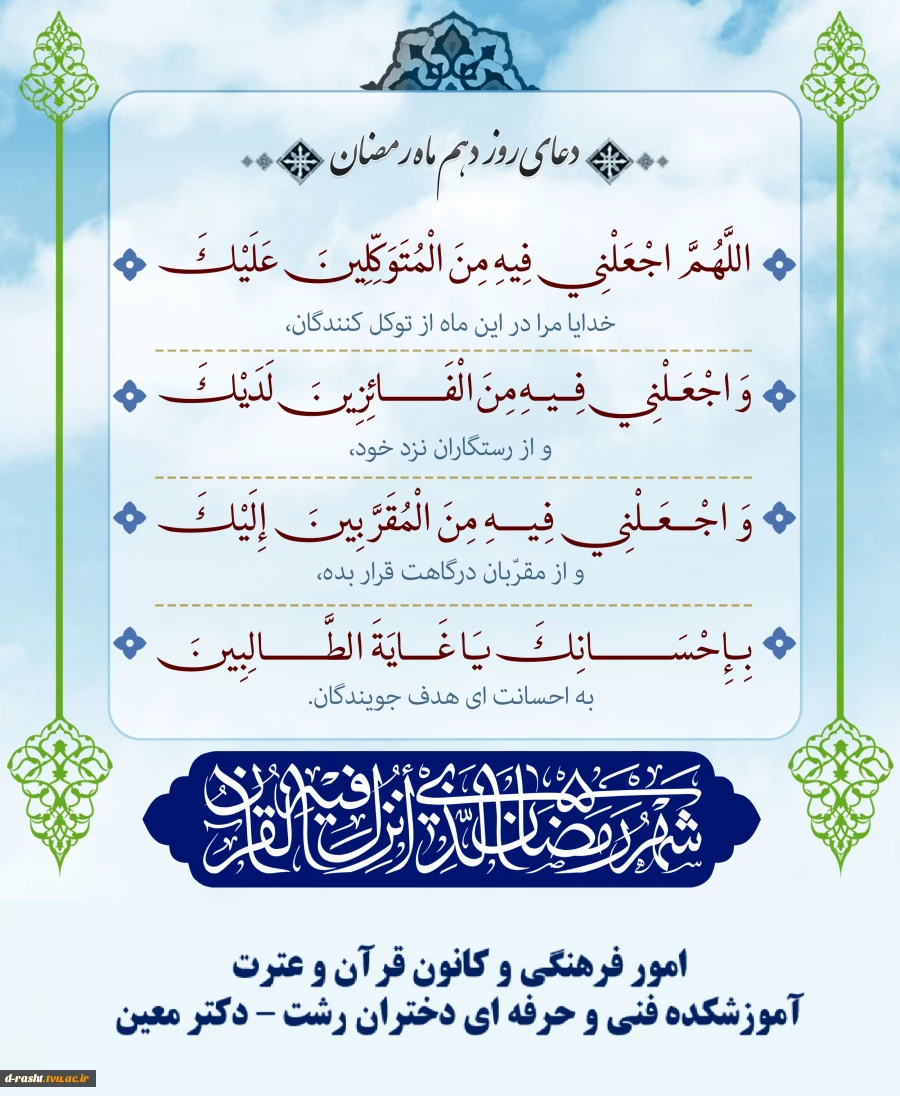 دعای روز دهم ماه رمضان
اللَّهُمَّ اجْعَلْنِي فِيهِ مِنَ الْمُتَوَكِّلِينَ عَلَيْكَ
خدایا مرا در این ماه از توکل کنندگان،
وَ اجْعَلْنِي فِيهِ مِنَ الْفَائِزِينَ لَدَيْكَ
و از رستگاران نزد خود،
وَ اجْعَلْنِي فِيهِ مِنَ الْمُقَرَّبِينَ إِلَيْكَ
و از مقرّبان درگاهت قرار بده،
بِإِحْسَانِكَ يَا غَايَةَ الطَّالِبِينَ
به احسانت ای هدف جویندگان.
شهر رمضان الذي أنزل فيه القرآن
امور فرهنگی و کانون قرآن و عترت
آموزشکده فنی و حرفه ای دختران رشت - دکتر معین
d-rasht.tvu.ac.ir